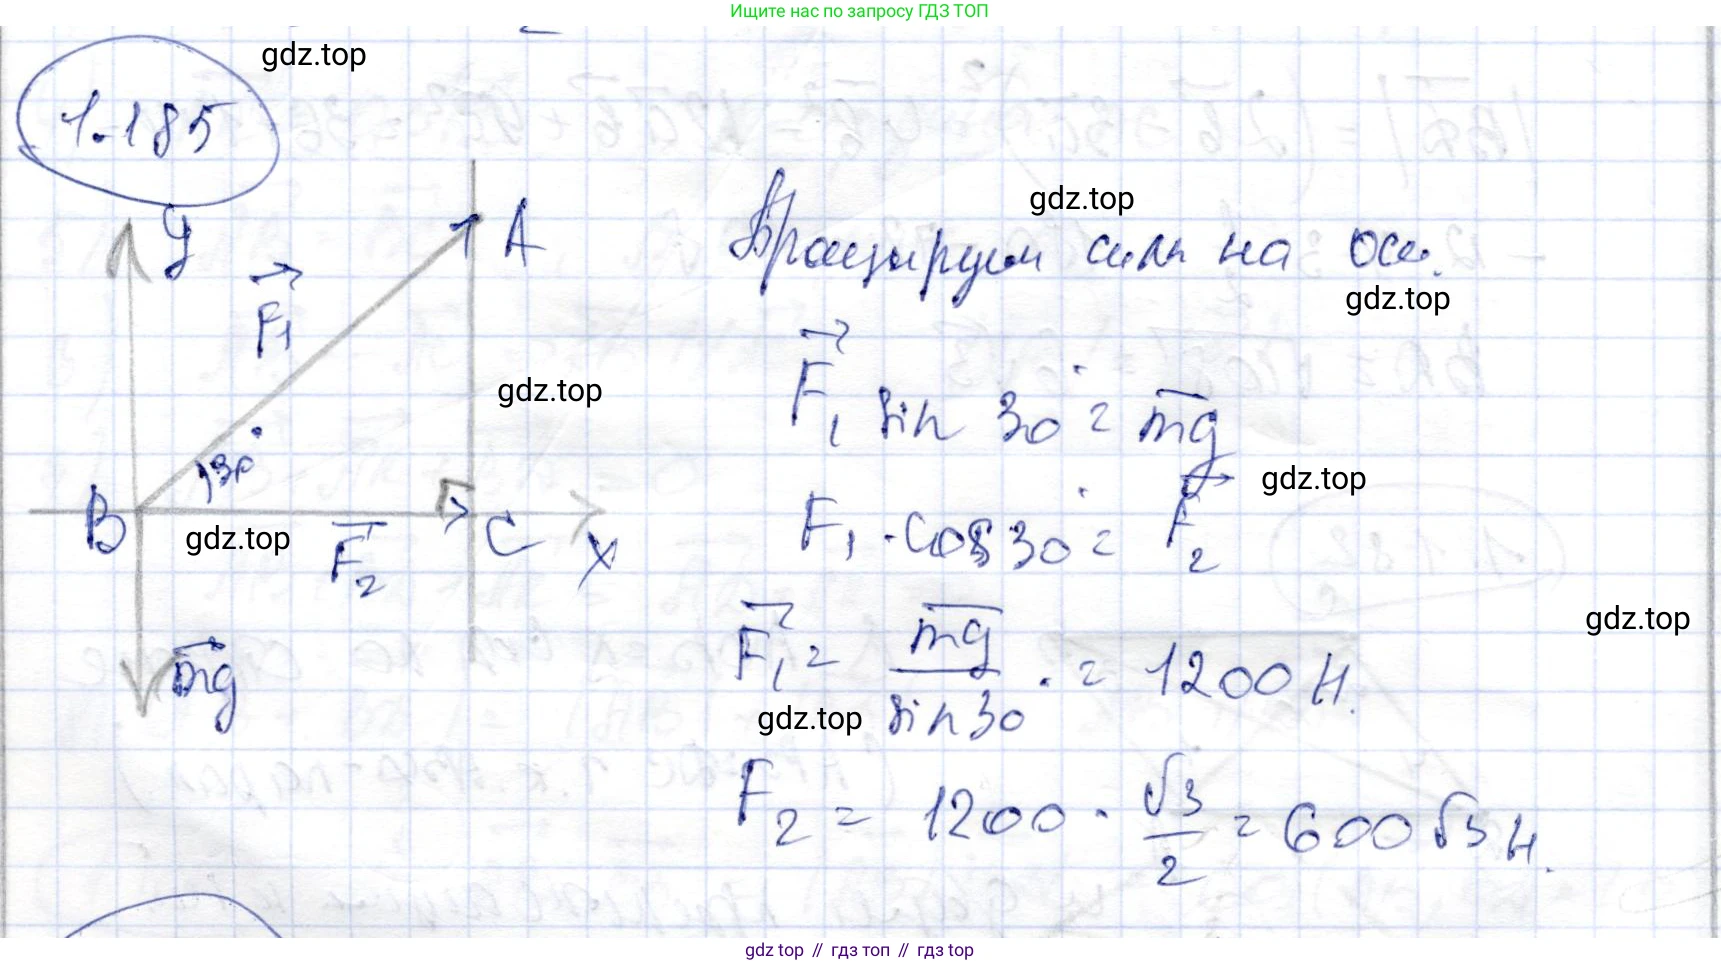 Ищите нас по запросу ГДЗ ТОП
1.185
gdz.top
y
A
F₁
30°
B
C
x
F₂
mg
gdz.top
gdz.top
Проецируем силы на оси.
gdz.top
gdz.top
F₁ sin 30° = mg
gdz.top
F₁ · cos 30° = F₂
F₁ = mg / sin 30 = 1200 Н.
gdz.top
gdz.top
F₂ = 1200 · √3 / 2 = 600 √3 Н.
gdz.top // гдз топ // гдз top